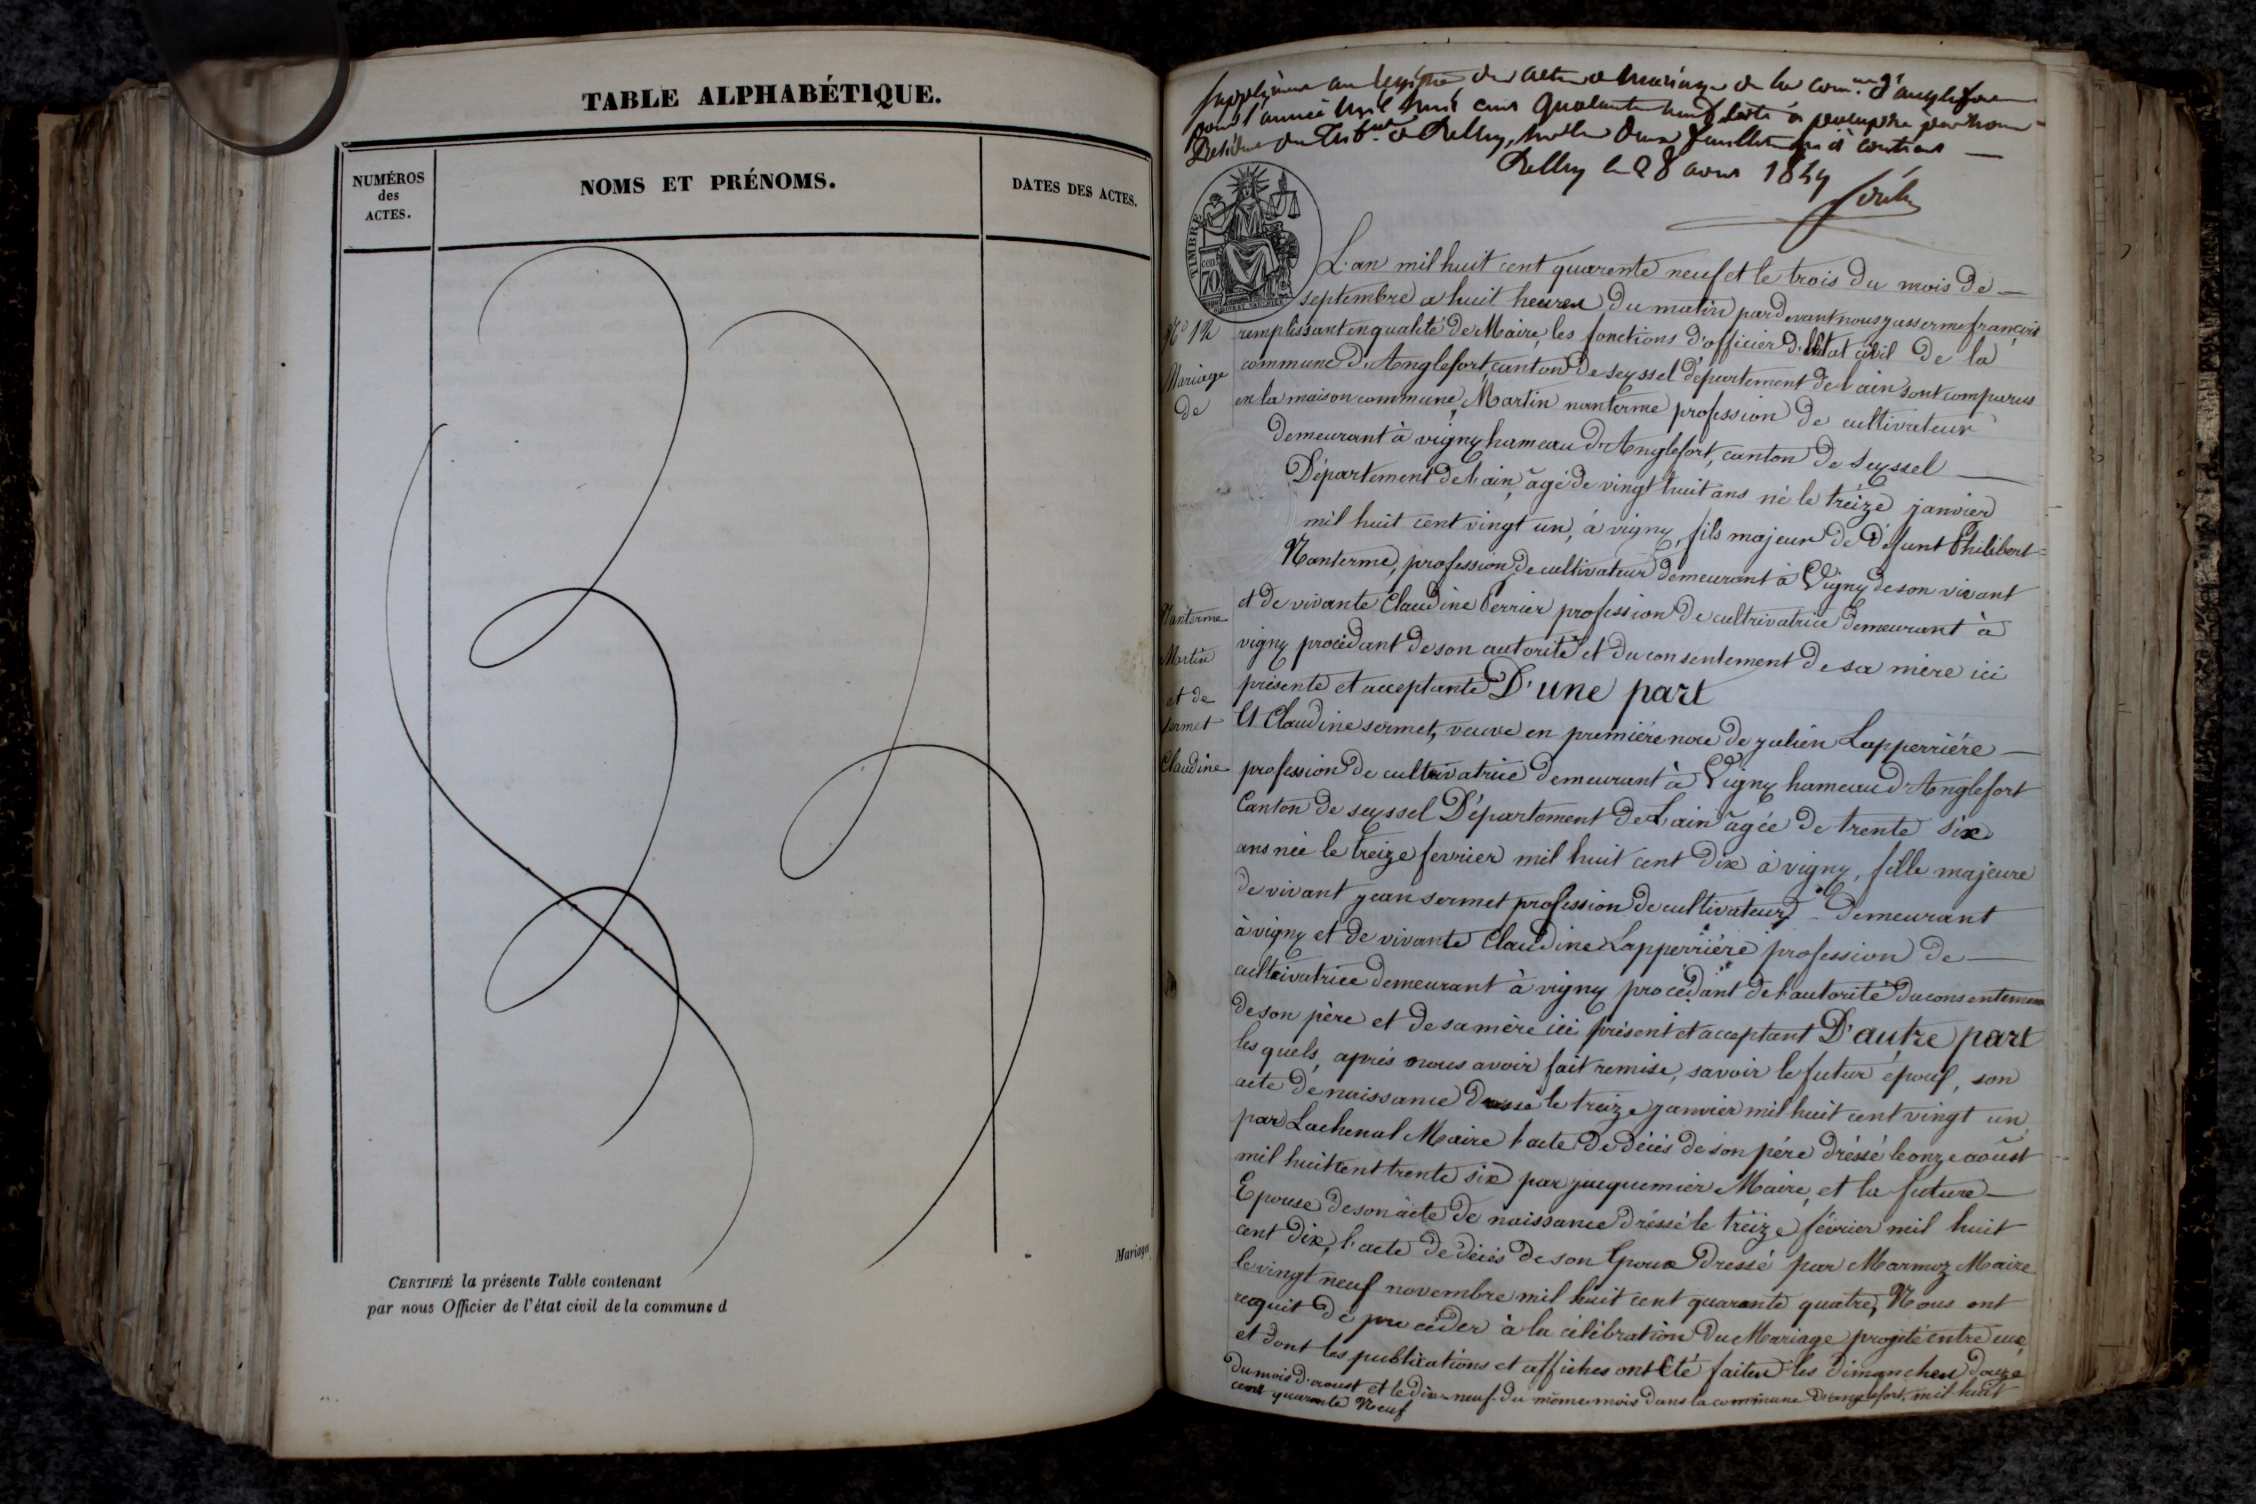 TABLE ALPHABÉTIQUE.
NUMÉROS
des
ACTES.
NOMS ET PRÉNOMS.
DATES DES ACTES.
Mariages
CERTIFIÉ la présente Table contenant
par nous Officier de l'état civil de la commune d
Supplément au registre des actes de Mariage de la com.ne d'anglefort
Pour l'année Mil huit cent Quarante neuf
Président du Trib.al de Belley,
Belley le 28 aout 1849
TIMBRE
70
L'an mil huit cent quarente neuf et le trois du mois de
septembre a huit heures du matin pardevant nous jasserme françois
remplissant en qualité de Maire, les fonctions d'officier de l'état civil de la
commune d'Anglefort, canton de seyssel département de l'ain sont comparus
en la maison commune, Martin nanterme profession de cultivateur
demeurant à vigny hameau d'Anglefort, canton de seyssel
Département de l'ain, âgé de vingt huit ans né le treize janvier
mil huit cent vingt un, à vigny, fils majeur de défunt Philibert
Nanterme, profession de cultivateur demeurant à Vigny de son vivant
et de vivante Claudine Perrier profession de cultrivatrice demeurant à
vigny procédant de son autorité et du consentement de sa mère ici
présente et acceptante D'une part
Et Claudine sermet, veuve en première noce de julien Lapperrière
profession de cultrivatrice demeurant à Vigny hameau d'Anglefort
Canton de seyssel Département de L'ain âgée de trente six
ans née le treize fevrier mil huit cent dix à vigny, fille majeure
de vivant jean sermet profession de cultivateur demeurant
à vigny et de vivante Claudine Lapperrière profession de
cultrivatrice demeurant à vigny procédant de l'autorité du consentement
de son père et de sa mère ici présent et acceptant D'autre part
les quels, après nous avoir fait remise, savoir le futur époux, son
acte de naissance dressé le treize janvier mil huit cent vingt un,
par Lachenal Maire l'acte de décès de son père dréssé le onze aoûst
mil huit cent trente six par juquemier Maire, et la future
Epouse de son acte de naissance dréssé le treize février mil huit
cent dix, l'acte de décès de son Epoux dressé par Marmoz Maire
le vingt neuf novembre mil huit cent quarante quatre, Nous ont
requit de procéder à la célébration du Mariage projeté entre eux,
et dont les publications et affiches ont Eté faites les dimanches douze
du mois d'aoust et le dix-neuf du même mois dans la commune d'anglefort, mil huit
cent quarante Neuf
N.o 12
Mariage
de
Nanterme
Martin
et de
Sermet
Claudine